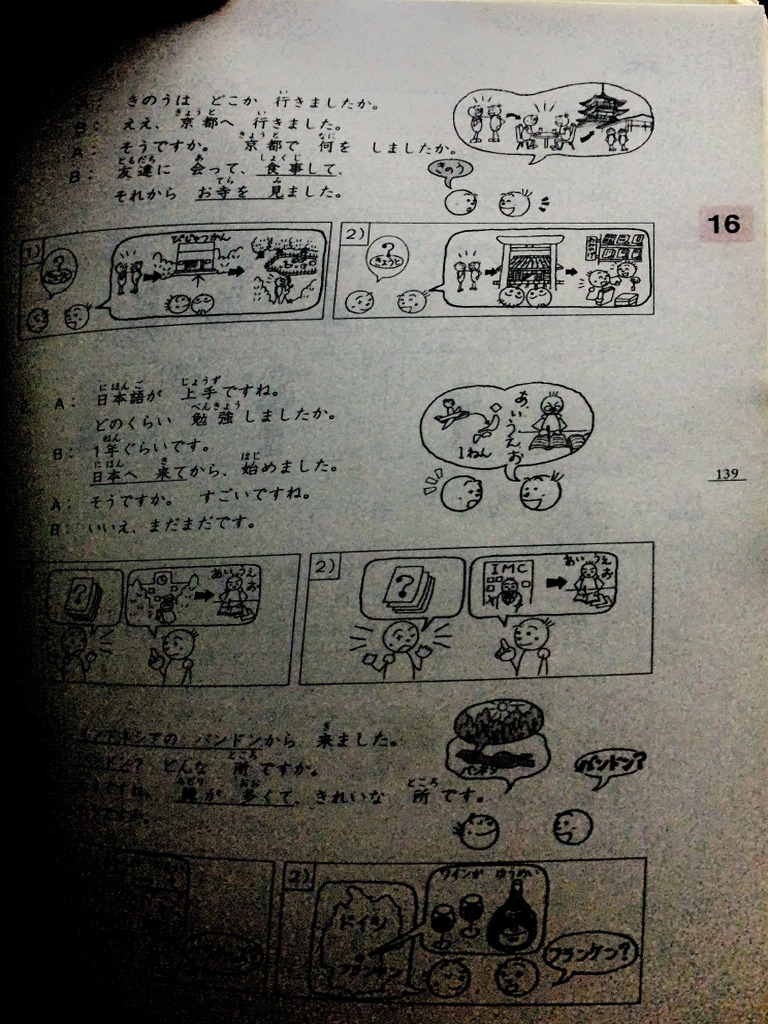 A: きのうは どこか 行きましたか。
B: ええ、京都へ 行きました。
A: そうですか。 京都で 何を しましたか。
B: 友達に 会って、食事して、
それから お寺を 見ました。
きのう
16
1)
?
きのう
びじゅつかん
2)
?
きょうと
A: 日本語が 上手ですね。
どのくらい 勉強しましたか。
B: 1年ぐらいです。
日本へ 来てから、始めました。
A: そうですか。 すごいですね。
B: いいえ、まだまだです。
あ、い、うえ、お
1ねん
139
?
あい うえ お
2)
?
IMC
あい うえ お
インドネシアの バンドンから 来ました。
バンドン? どんな 所ですか。
緑が 多くて、きれいな 所です。
バンドン?
2)
ドイツ
フランケン
ワインが ゆうめい
フランケン?